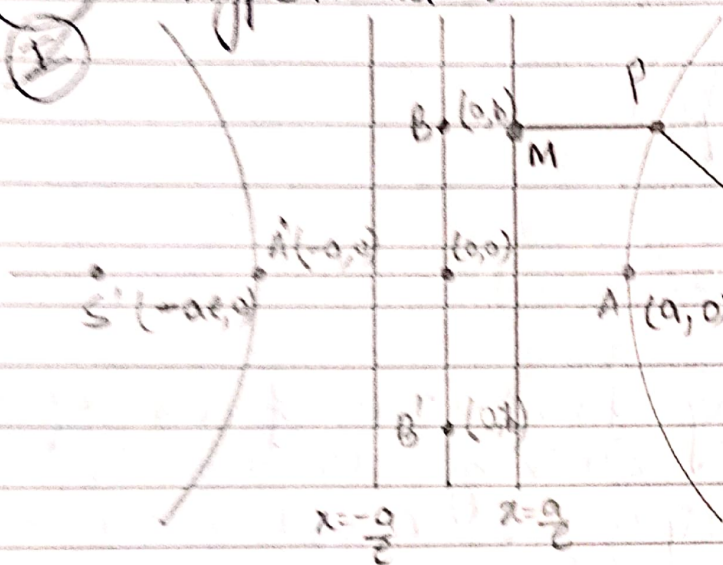 I
P
B (0,b)
M
A'(-a,0)
(0,0)
S'(-ae,0)
A (a,0
B'
x=-a/e
x=a/e